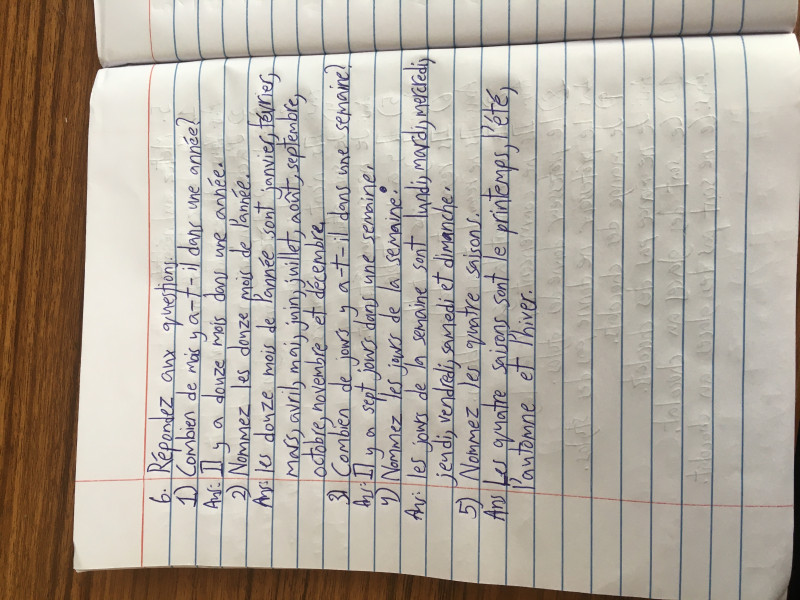 6. Répondez aux question:
1) Combien de mois y a-t-il dans une année?
Ans: Il y a douze mois dans une année.
2) Nommez les douze mois de l'année.
Ans: les douze mois de l'année sont janvier, février,
mars, avril, mai, juin, juillet, août, septembre,
octobre, novembre et décembre.
3) Combien de jours y a-t-il dans une semaine?
Ans: Il y a sept jours dans une semaine.
4) Nommez les jours de la semaine.
Ans: les jours de la semaine sont lundi, mardi, mercredi,
jeudi, vendredi, samedi et dimanche.
5) Nommez les quatre saisons.
Ans Le quatre saisons sont le printemps, l'été,
l'automne et l'hiver.